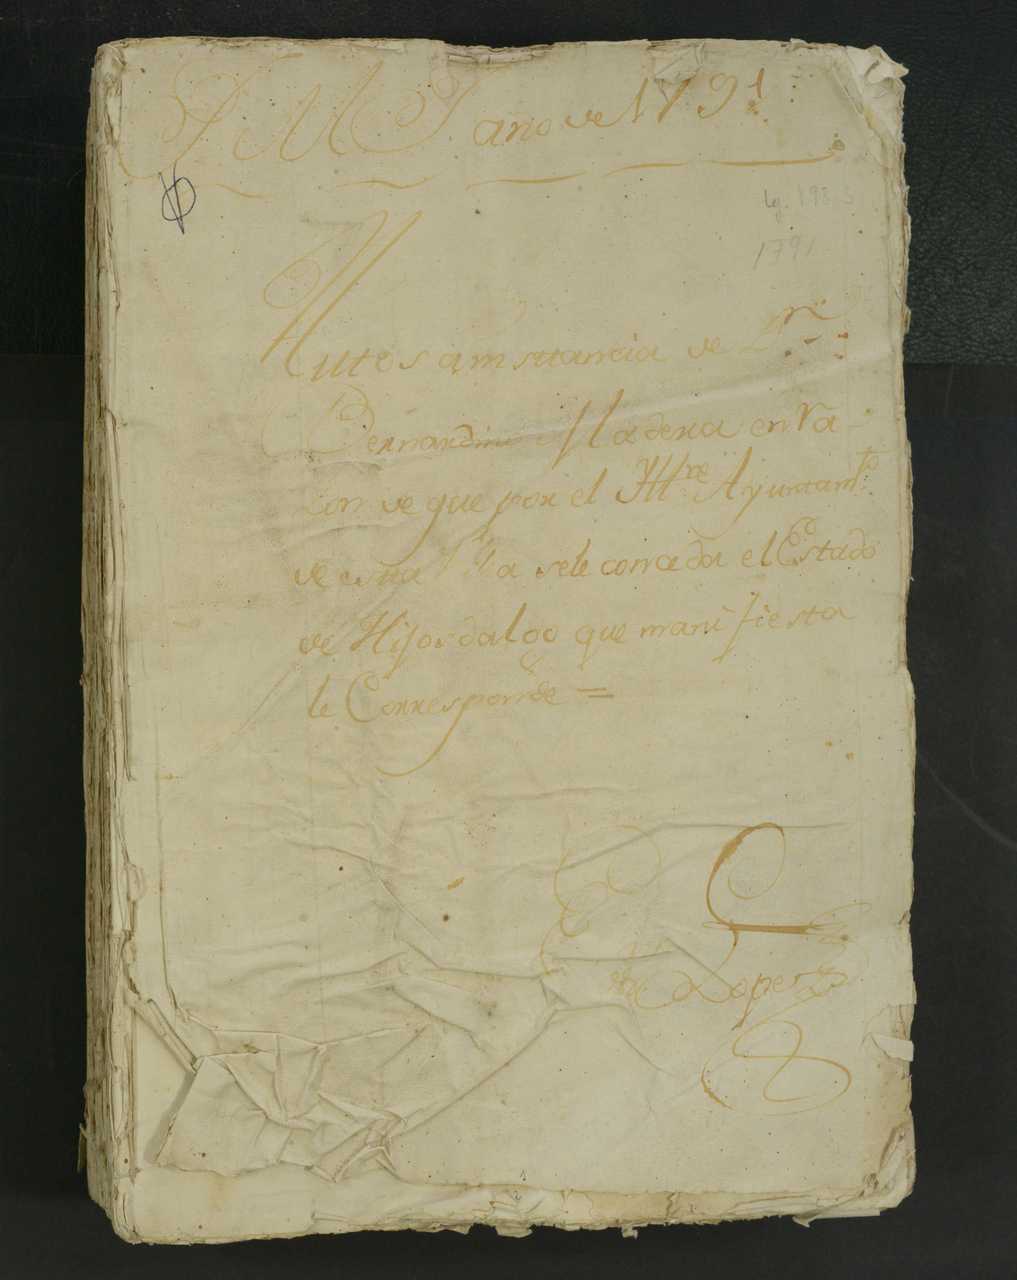 J M J año de 1791
Lg. 198
1791
Autos a instancia de Dn
Bernardino Madera en ra
zon de que por el Iltre Ayuntamto
de esta Va se le conceda el Estado
de Hijosdalgo que manifiesta
le Corresponde =
Lopez